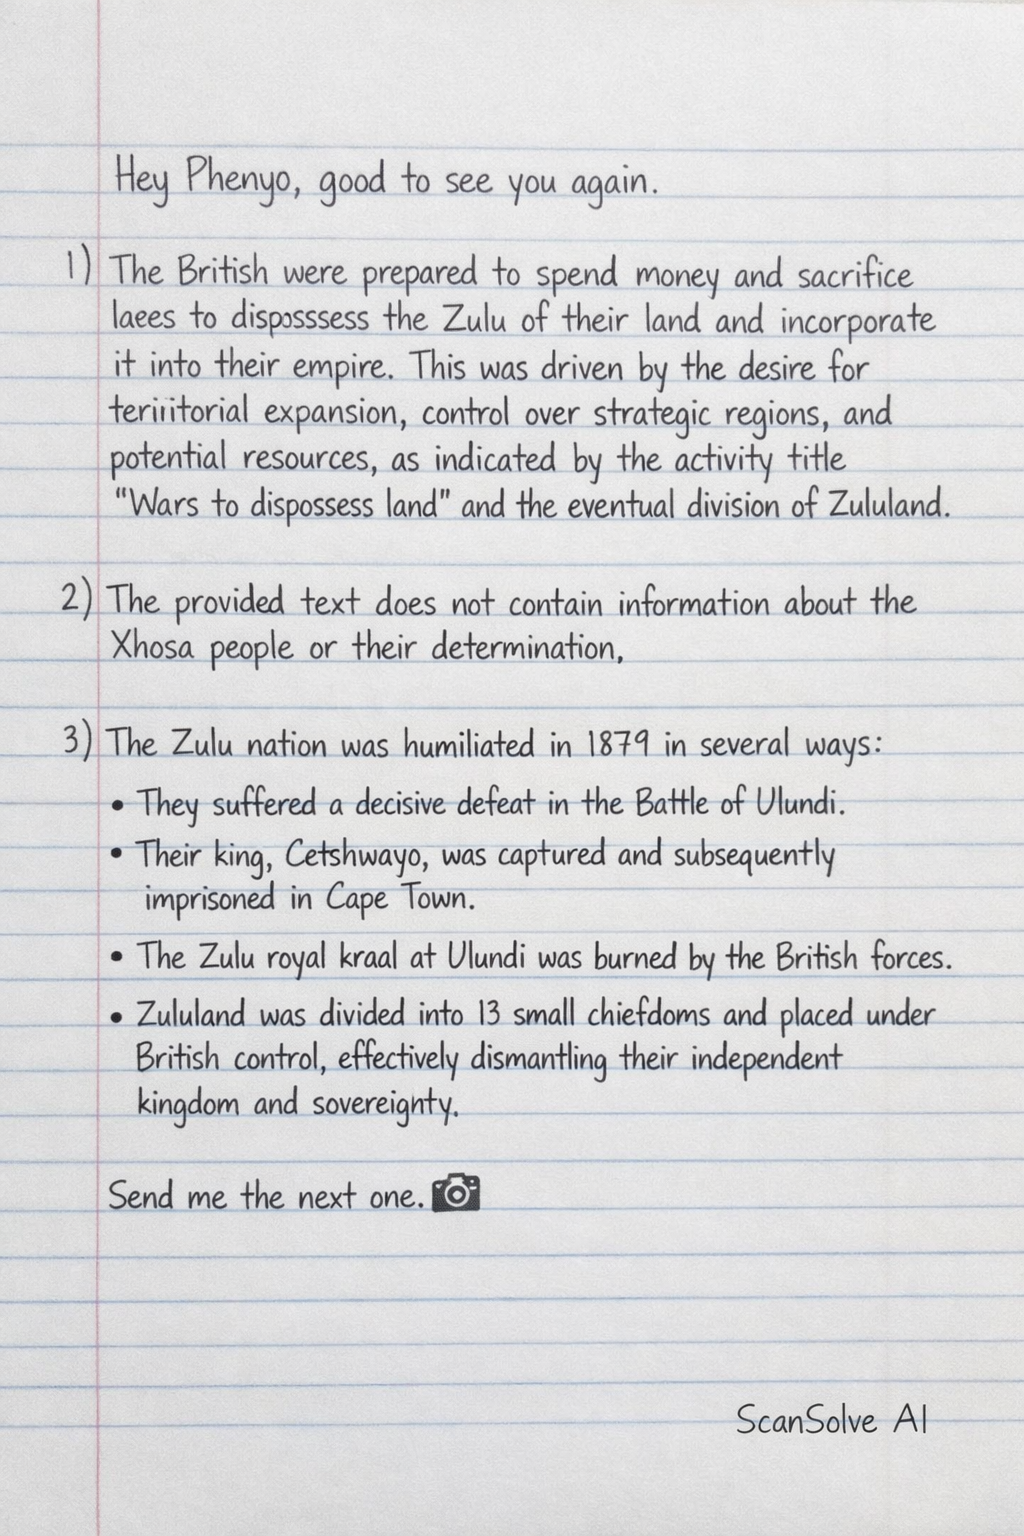 Hey Phenyo, good to see you again.
1) The British were prepared to spend money and sacrifice
laees to disposssess the Zulu of their land and incorporate
it into their empire. This was driven by the desire for
teriiitorial expansion, control over strategic regions, and
potential resources, as indicated by the activity title
"Wars to dispossess land" and the eventual division of Zululand.
2) The provided text does not contain information about the
Xhosa people or their determination,
3) The Zulu nation was humiliated in 1879 in several ways:
• They suffered a decisive defeat in the Battle of Ulundi.
• Their king, Cetshwayo, was captured and subsequently
imprisoned in Cape Town.
• The Zulu royal kraal at Ulundi was burned by the British forces.
• Zululand was divided into 13 small chiefdoms and placed under
British control, effectively dismantling their independent
kingdom and sovereignty.
Send me the next one. 📷
ScanSolve AI